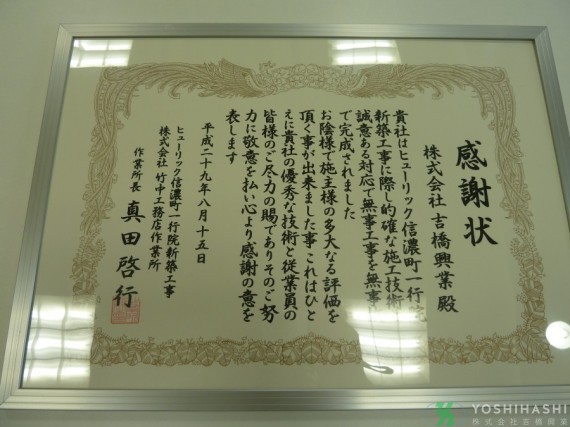 感謝状
株式会社 吉橋興業 殿
貴社はヒューリック信濃町一行院
新築工事に際し的確な施工技術
誠意ある対応で無事工事を無事
で完成されました
お陰様で施主様の多大なる評価を
頂く事が出来ました事これはひと
えに貴社の優秀な技術と従業員の
皆様のご尽力の賜でありそのご努
力に敬意を払い心より感謝の意を
表します
平成二十九年八月十五日
ヒューリック信濃町一行院新築工事
株式会社 竹中工務店作業所
作業所長 真田啓行
YOSHIHASHI
株式会社吉橋興業